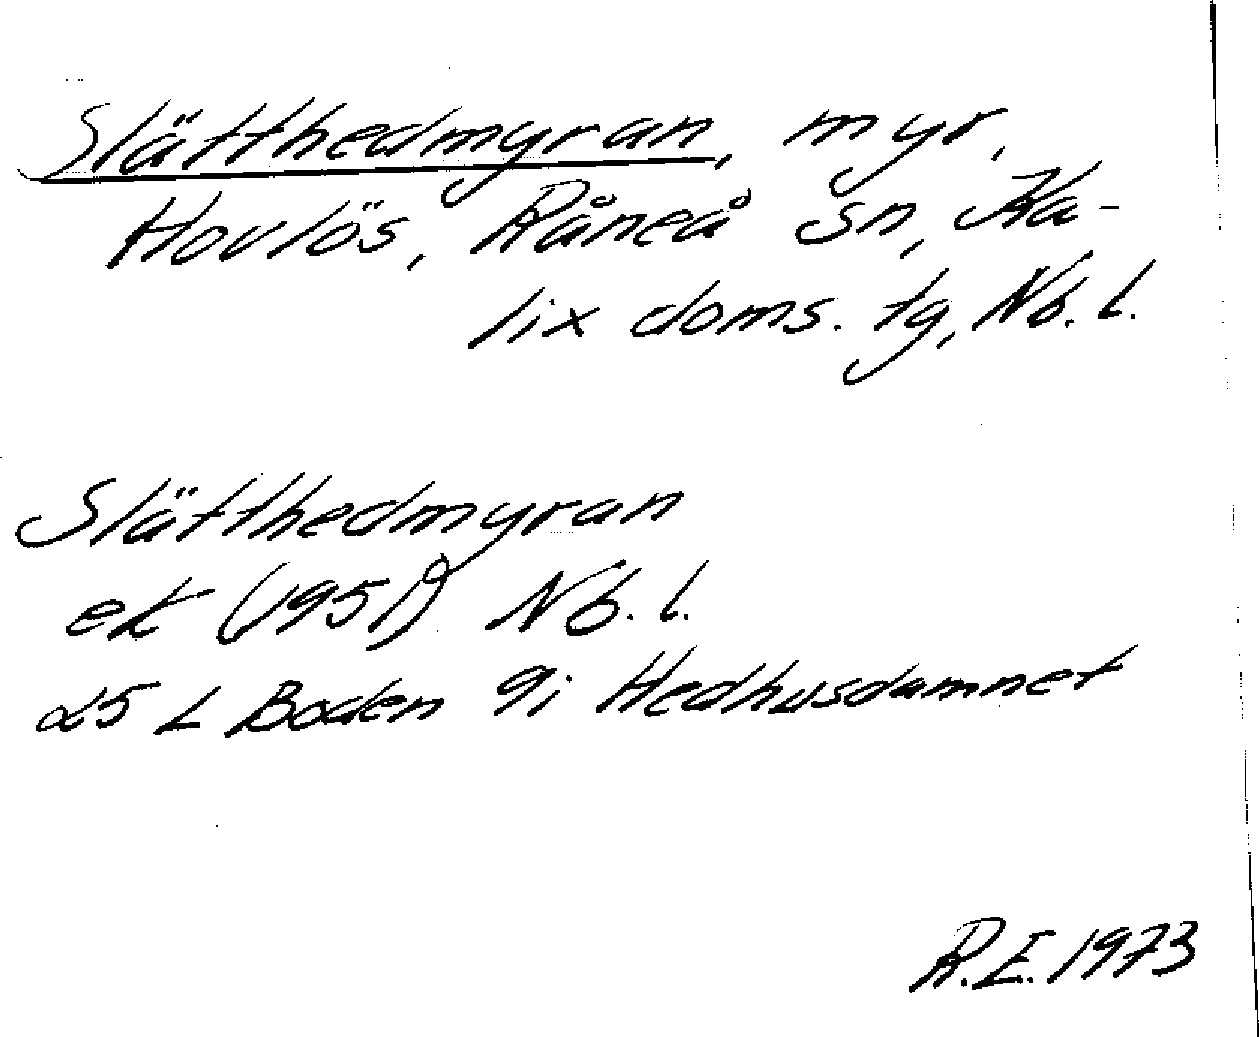 Slätthedmyran, myr,
Hovlös, Råneå sn, Ka-
lix doms. tg, Nb. l.
Slätthedmyran
ek (1951) Nb. l.
25 L Boden 9i Hedhusdamnet
R.E. 1973